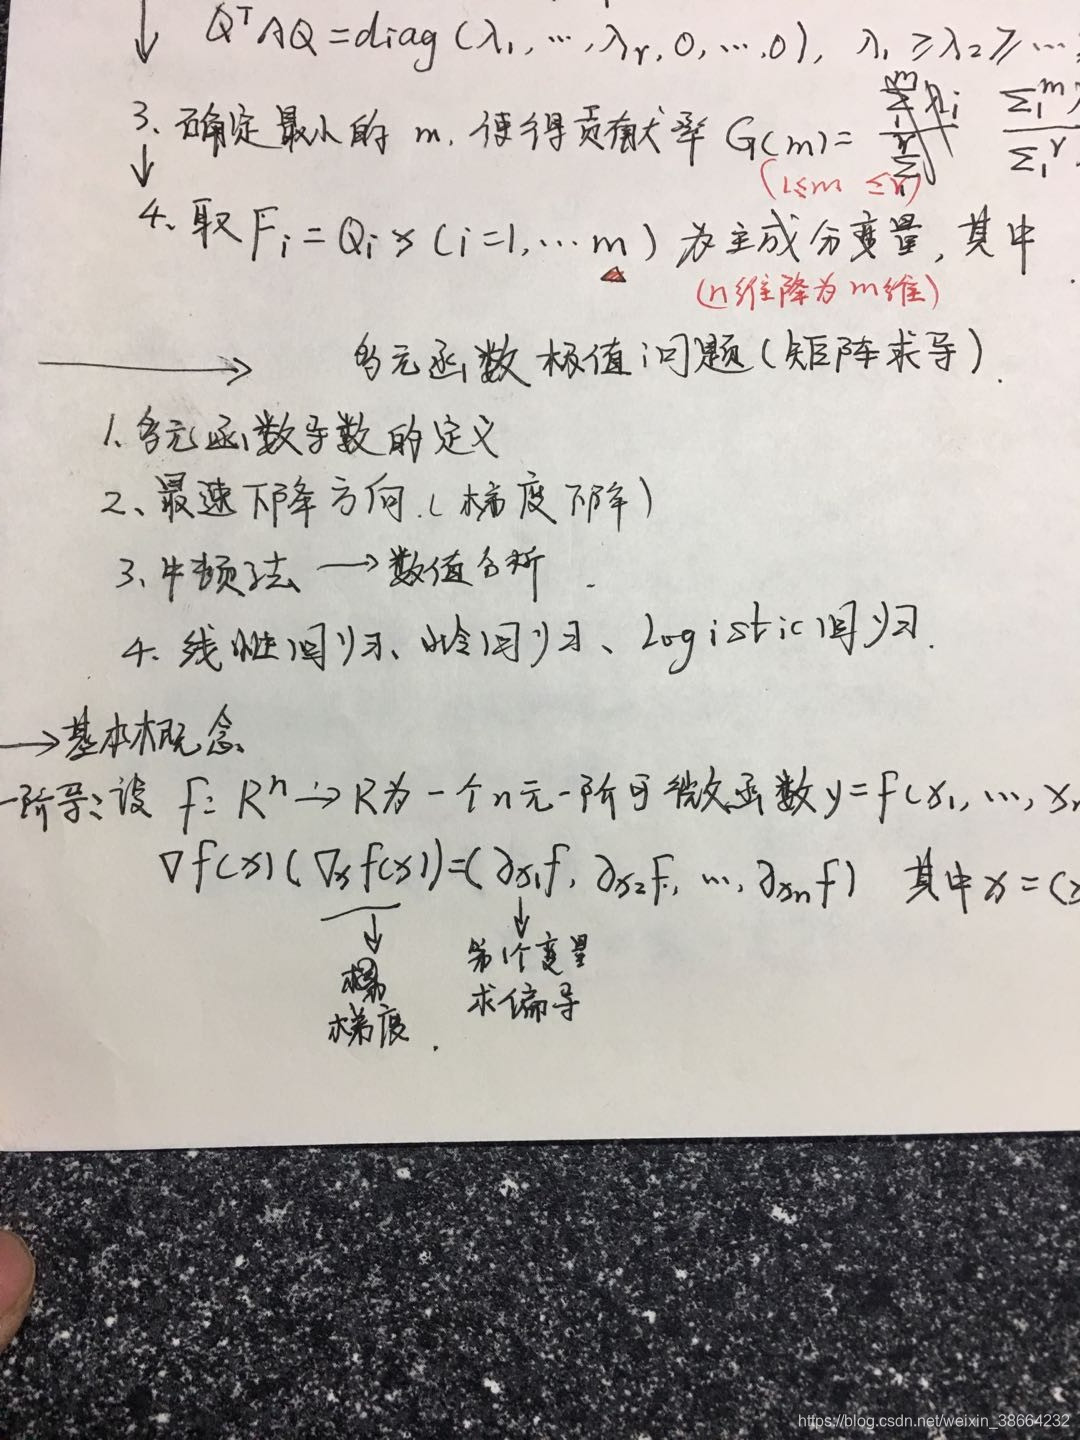 QᵀΛQ = diag(λ₁, …, λᵣ, 0, …, 0), λ₁ ≥ λ₂ ≥ …
3、确定最小的 m, 使得贡献率 G(m) = Σ₁ᵐ / Σ₁ʳ
(1≤m≤r)
4、取 Fᵢ = Qᵢx (i=1, … m) 为主成分变量, 其中
(n维降为m维)
多元函数极值问题(矩阵求导).
1、多元函数导数的定义
2、最速下降方向.(梯度下降)
3、牛顿法 → 数值分析
4. 线性回归、岭回归、Logistic回归.
→基本概念
一阶导: 设 f: Rⁿ → R为一个n元一阶可微函数 y=f(x₁, …, xₙ
∇f(x) (∇ₓf(x)) = (∂x₁f, ∂x₂f, …, ∂xₙf) 其中 x = (x
第1个变量
求偏导
梯度
https://blog.csdn.net/weixin_38664232